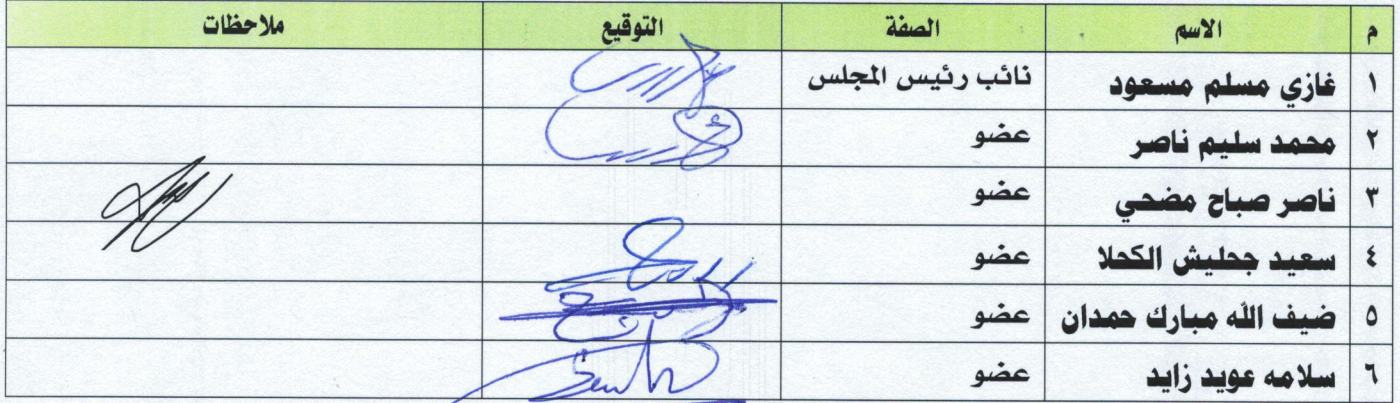 م الاسم الصفة التوقيع ملاحظات
١ غازي مسلم مسعود نائب رئيس المجلس
٢ محمد سليم ناصر عضو
٣ ناصر صباح مضحي عضو
٤ سعيد جحليش الكحلا عضو
٥ ضيف الله مبارك حمدان عضو
٦ سلامه عويد زايد عضو